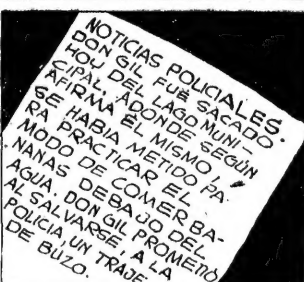 NOTICIAS POLICIALES.
DON GIL FUÉ SACADO
HOY DEL LAGO MUNI-
CIPAL, ADONDE SEGÚN
AFIRMA ÉL MISMO,
SE HABIA METIDO PA-
RA PRACTICAR EL
MODO DE COMER BA-
NANAS DEBAJO DEL
AGUA. DON GIL PROMETIÓ
AL SALVARSE, A LA
POLICIA, UN TRAJE
DE BUZO.